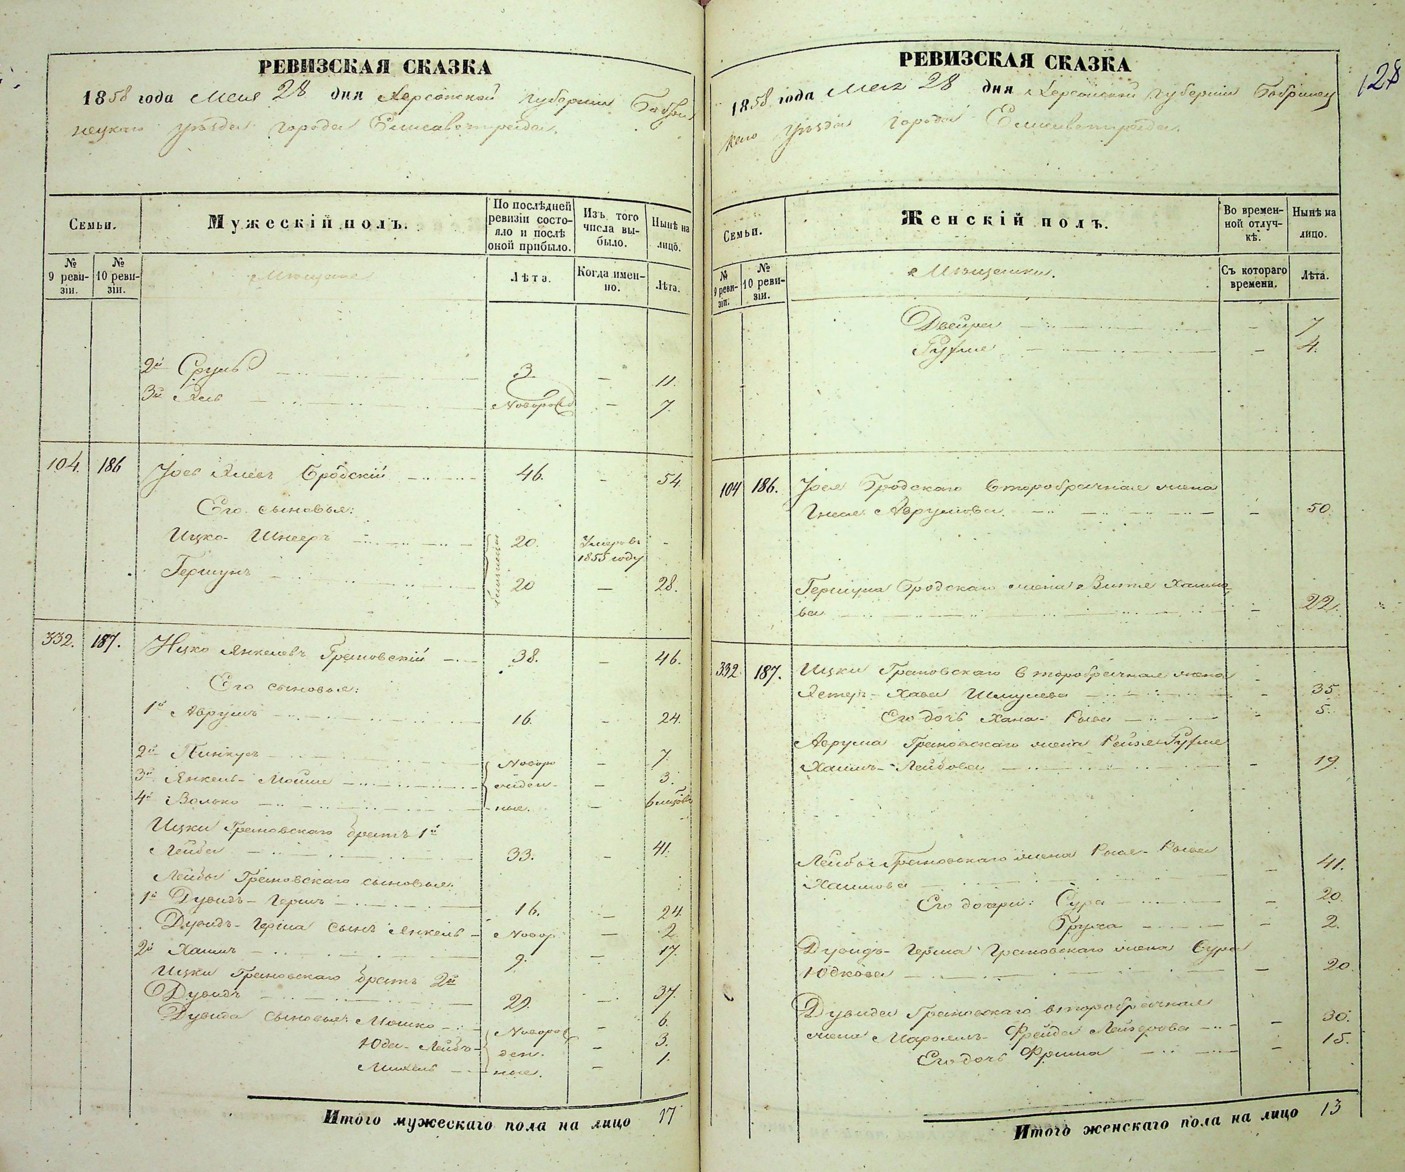 РЕВИЗСКАЯ СКАЗКА
1858 года Мая 28 дня Херсонской губернии Бобри
нецкаго уѣзда города Елисаветграда.
Семьи.
Мужескій полъ.
По послѣдней ревизіи состояло и послѣ оной прибыло.
Изъ того числа выбыло.
Нынѣ на лицо.
№ 9 ревизіи.
№ 10 ревизіи.
Мѣщане
Лѣта.
Когда именно.
Лѣта.
2й Сруль 3. — 11.
3й Яль Новорожд — 7.
104. 186 Іось Бродскій 46. — 54.
Его сыновья:
Ицко Шнеер 20. Умеръ въ 1855 году -
Гершунъ 20 — 28.
332. 187. Ицко Янкелевъ Грановскій 38. — 46.
Его сыновья:
1й Аврумъ 16. — 24.
2й Пинкусъ Новоро — 7.
3й Янкель-Мойше жден — 3.
4й Волько ные. — 6 мѣсяц
Ицки Грановскаго братъ 1й
Лейба 33. — 41.
Лейбы Грановскаго сыновья:
1й Дувидъ-Герш 16. — 24
Дувидъ-Герша сынъ Янкель Новор. — 2
2й Хаимъ 9. — 17.
Ицки Грановскаго братъ 2й
Дувидъ 29. — 37.
Дувида сыновья: Мошко Новорож — 6.
Юда-Лейбъ ден — 3.
Михель ные. — 1.
Итого мужескаго пола на лицо 17
128
РЕВИЗСКАЯ СКАЗКА
1858 года Мая 28 дня Херсонской губернии Бобринец
каго уѣзда города Елисаветграда.
Семьи.
Женскій полъ.
Во временной отлучкѣ.
Нынѣ на лицо.
№ 9 ревизіи.
№ 10 ревизіи.
Мѣщанки.
Съ котораго времени.
Лѣта.
Двейра — 7
— 4.
104 186. Іося Бродскаго второбрачная жена
Аврумова — 50.
Гершуна Бродскаго жена Витя Хаимо
ва — 22.
332 187. Ицки Грановскаго второбрачная жена
Эстер-Хава Шмулева — 35
Его дочь Хана-Рыва — 5.
Аврума Грановскаго жена Рейзя
Хаимъ-Лейбова — 19.
Лейбы Грановскаго жена
Хаимова — 41.
Его дочери: Сура — 20.
Груха — 2.
Дувидъ-Герша Грановскаго жена Сура
Юдкова — 20.
Дувида Грановскаго второбрачная
жена Фрейда Лейзерова — 30.
Его дочь Фрима — 15.
Итого женскаго пола на лицо 13